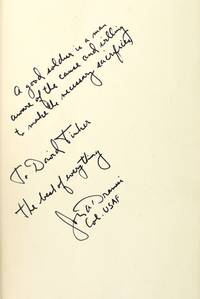 A good soldier is a man
aware of the cause and willing
to make the necessary sacrifices
To David Tinker
The best of everything
John A. Dramesi
Col. USAF